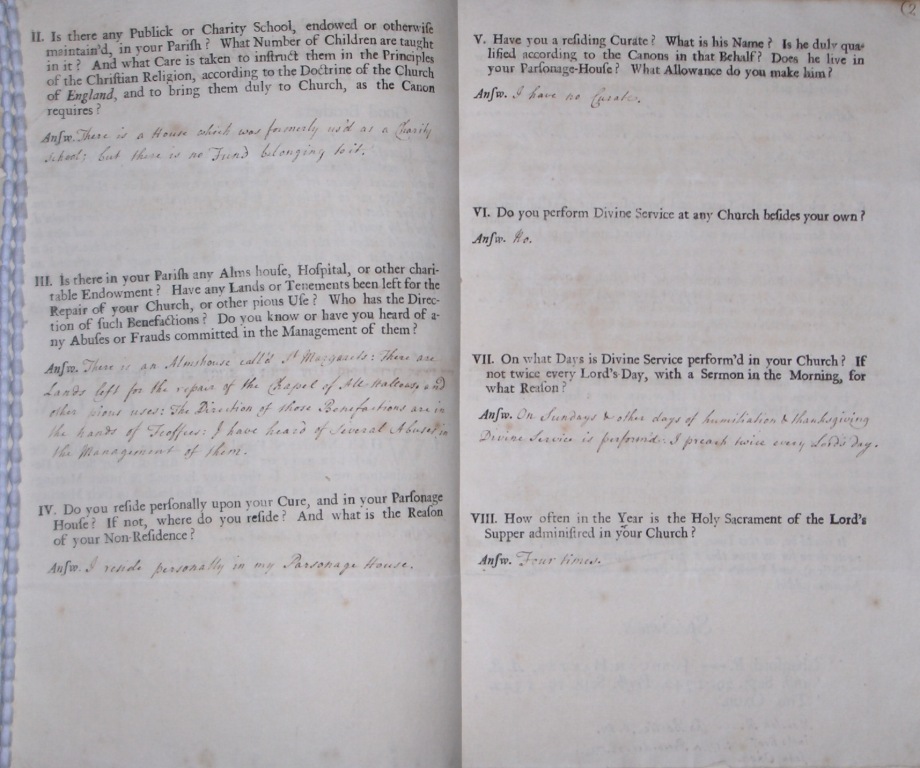 II. Is there any Publick or Charity School, endowed or otherwiſe
maintain'd, in your Pariſh? What Number of Children are taught
in it? And what Care is taken to inſtruct them in the Principles
of the Chriſtian Religion, according to the Doctrine of the Church
of England, and to bring them duly to Church, as the Canon
requires?
Anſw. There is a House which was formerly us'd as a Charity
School; but there is no Fund belonging to it.
III. Is there in your Pariſh any Alms houſe, Hoſpital, or other chari-
table Endowment? Have any Lands or Tenements been left for the
Repair of your Church, or other pious Uſe? Who has the Direc-
tion of ſuch Benefactions? Do you know or have you heard of a-
ny Abuſes or Frauds committed in the Management of them?
Anſw. There is an Almshouse call'd St Margarets: There are
Lands left for the repair of the Chapel of All Hallows, and
other pious uses: The Direction of those Benefactions are in
the hands of Feoffees: I have heard of Several Abuses in
the Management of them.
IV. Do you reſide perſonally upon your Cure, and in your Parſonage
Houſe? If not, where do you reſide? And what is the Reaſon
of your Non-Reſidence?
Anſw. I reside personally in my Parsonage House.
(2
V. Have you a reſiding Curate? What is his Name? Is he duly qua-
lified according to the Canons in that Behalf? Does he live in
your Parſonage-Houſe? What Allowance do you make him?
Anſw. I have no Curate.
VI. Do you perform Divine Service at any Church beſides your own?
Anſw. No.
VII. On what Days is Divine Service perform'd in your Church? If
not twice every Lord's-Day, with a Sermon in the Morning, for
what Reaſon?
Anſw. On Sundays & other days of humiliation & thanksgiving
Divine Service is perform'd: I preach twice every Lord's day.
VIII. How often in the Year is the Holy Sacrament of the Lord's
Supper adminiſtred in your Church?
Anſw. Four times.